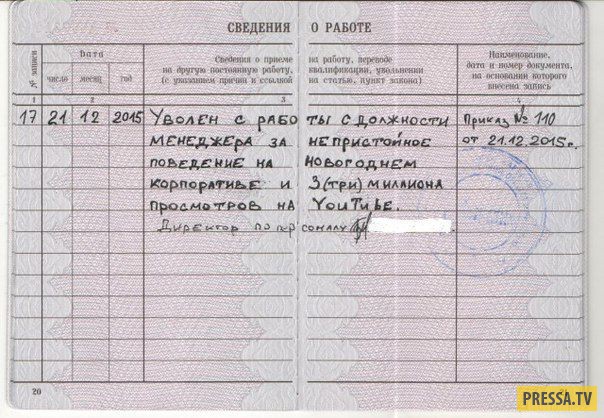 СВЕДЕНИЯ О РАБОТЕ
№ записи
Дата
число месяц год
Сведения о приеме на работу, переводе
на другую постоянную работу, квалификации, увольнении
(с указанием причин и ссылкой на статью, пункт закона)
Наименование,
дата и номер документа,
на основании которого
внесена запись
1 2 3 4
17 21 12 2015 Уволен с работы с должности Приказ № 110
менеджера за непристойное от 21.12.2015г.
поведение на новогоднем
корпоративе и 3(три) миллиона
просмотров на YouTube.
Директор по персоналу
20
PRESSA.TV